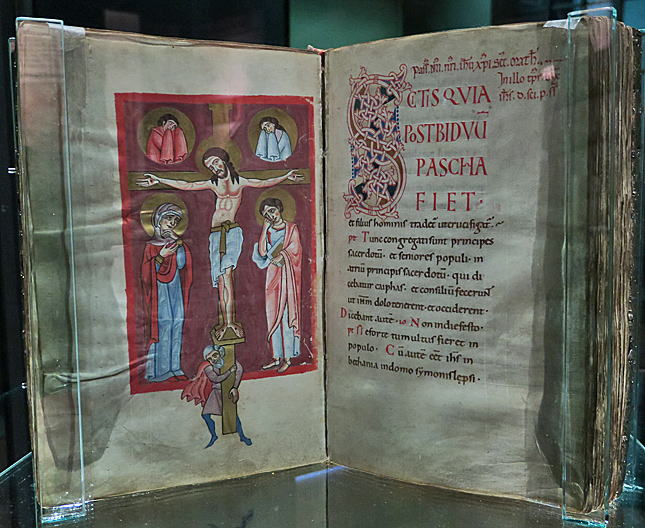 Pass. dni. nri. ihu xpi. scd. math.
In illo tpr.
ihs. d. sci. p. si
SCTIS QVIA
POST BIDVŪ
PASCHA
FIET.
et filius hominis tradet̄ ut crucifigat̄.
Tunc congregati sunt principes
sacerdotū. et seniores populi. in
atriū principis sacerdotū. qui di
cebatur caiphas. et consiliū fecerunt
ut ihm̄ dolo tenerent. et occiderent.
Dicebant autē. Non in die festo.
ne forte tumultus fieret in
populo. Cū autē eēt ihs in
bethania in domo symonis lepsi.